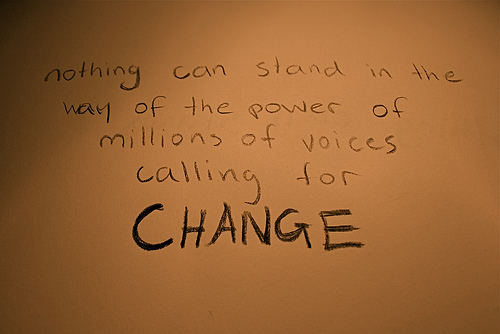 nothing can stand in the
way of the power of
millions of voices
calling for
CHANGE